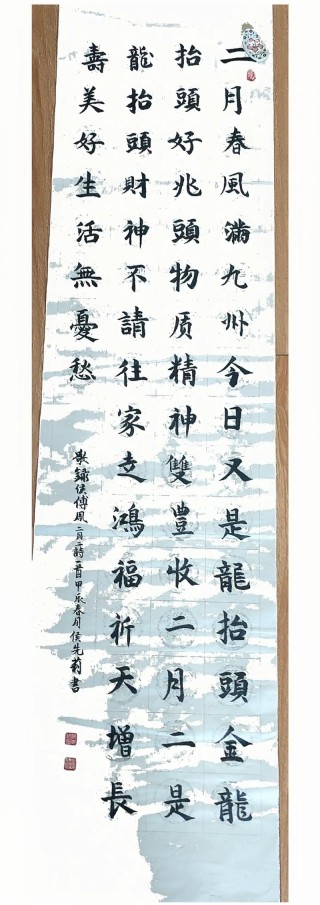 二月春風滿九州今日又是龍抬頭金龍
抬頭好兆頭物质精神雙豐收二月二是
龍抬頭財神不請往家走鴻福祈天增長
壽美好生活無憂愁
敬錄侯傅風二月二詩二首甲辰春月侯先莉書